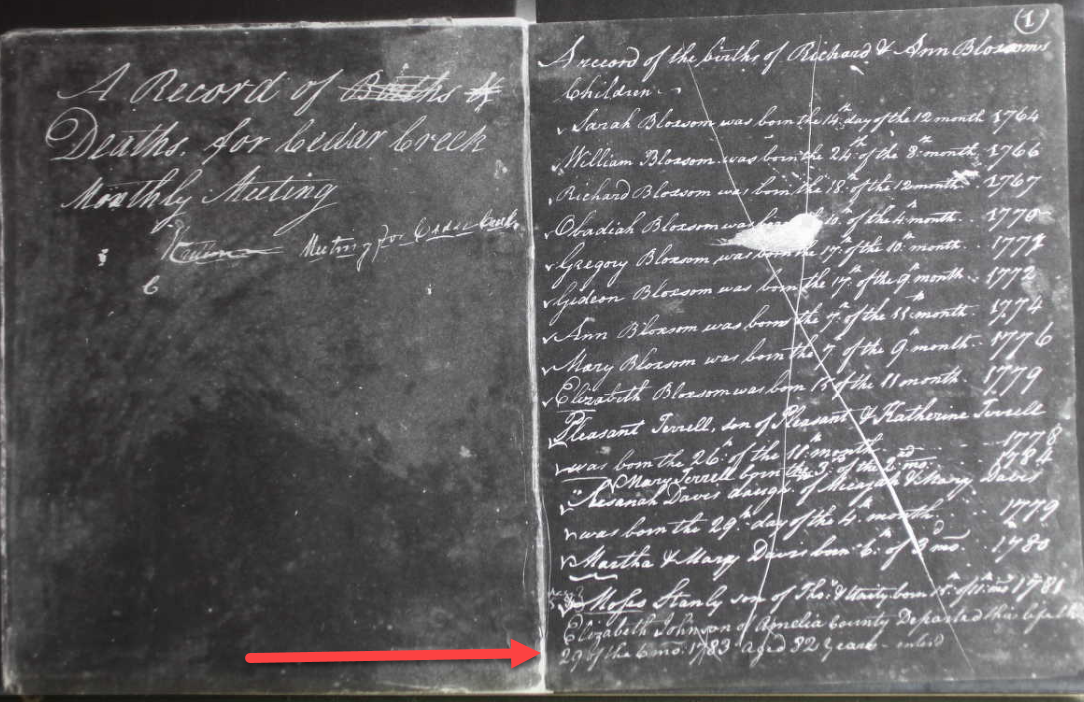 A Record of Births &
Deaths. for Cedar Creek
Monthly Meeting
Meeting for Cedar Creek
(1)
A record of the births of Richard & Ann Bloxsoms
Children.
Sarah Bloxsom was born the 14th day of the 12 month 1764
William Bloxsom was born the 24th of the 8th month 1766
Richard Bloxsom was born the 18th of the 12 month 1767
Obadiah Bloxsom was born 10th of the 4th month 1770
Gregory Bloxsom was born the 17th of the 10th month
Gideon Bloxsom was born the 17th of the 9th month 1772
Ann Bloxsom was born the 7th of the 11th month 1774
Mary Bloxsom was born the 7th of the 9th month 1776
Elizabeth Bloxsom was born 15 of the 11 month. 1779
Pleasant Terrell, son of Pleasant & Katherine Terrell
was born the 26th of the 11th month 1778
Mary Terrell born the 3rd of the 2nd mo. 1784
Kesanah Davis daugr. of Micajah & Mary Davis
was born the 29th day of the 4th month 1779
Martha & Mary Davis born 6th of mo. 1780
Moses Stanly son of Thos. & Unity born 15th of 11th mo 1781
Elizabeth Johnson of Amelia County Departed this life
29 of the 6 mo. 1783 aged 32 Years